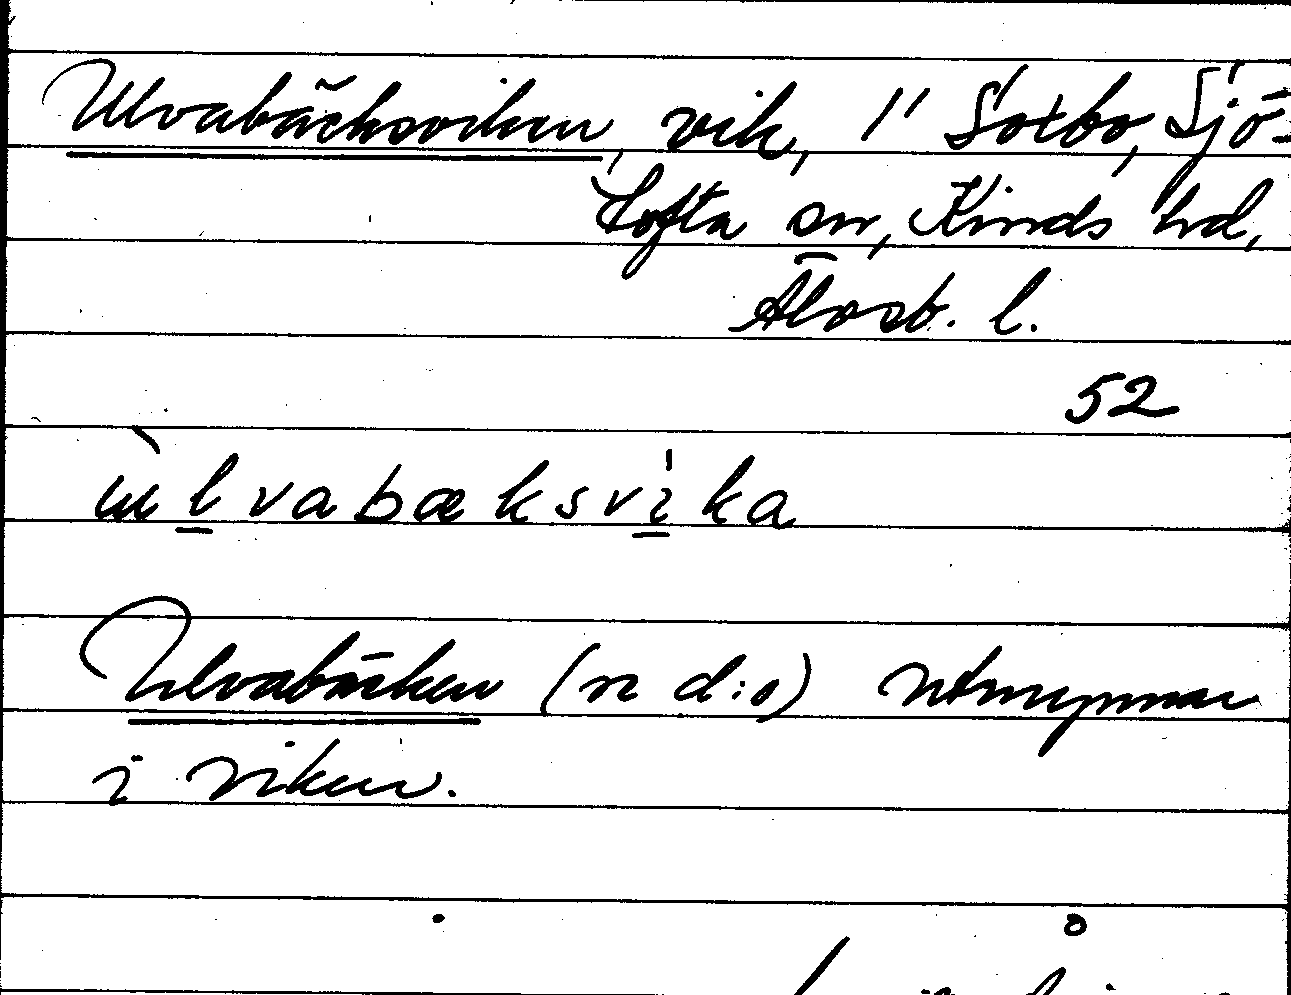 Ulvabäcksviken, vik, 1' Sotbo, Sjö-
tofta sn, Kinds hd,
Älvsb. l.
52
ùlvabæksvika
Ulvabäcken (n d:o) utmynnar
i viken.